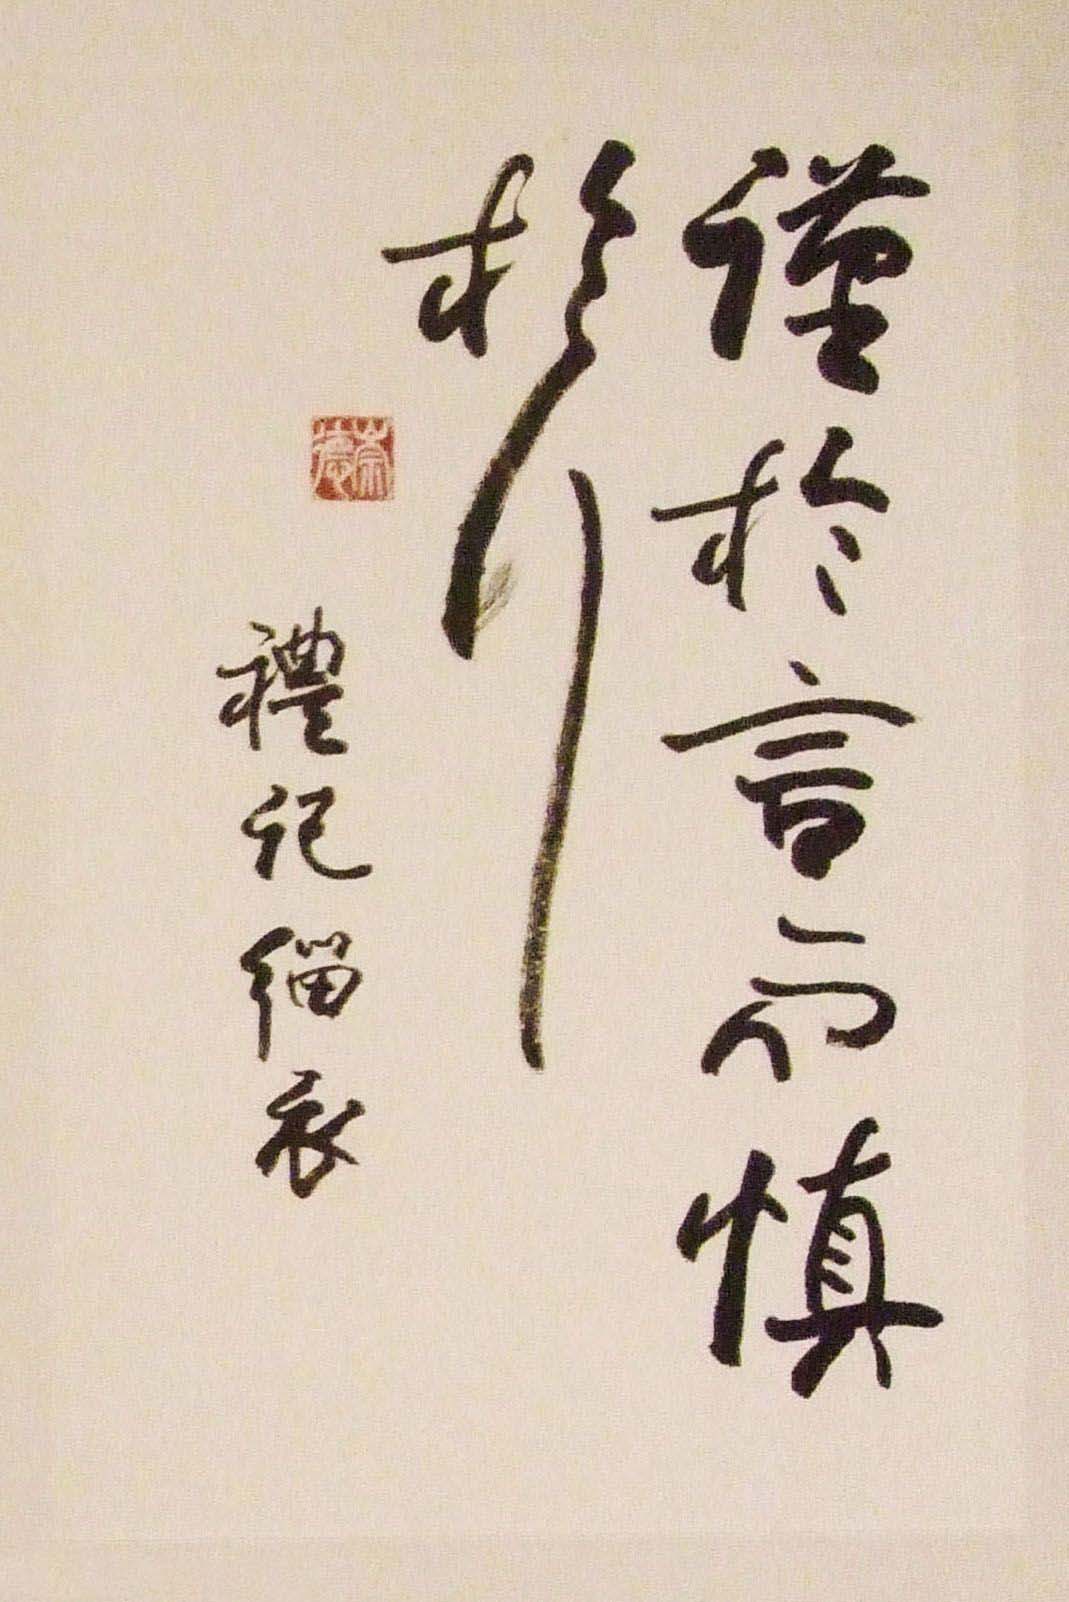 謹於言而慎
於行
禮記緇衣
崇德